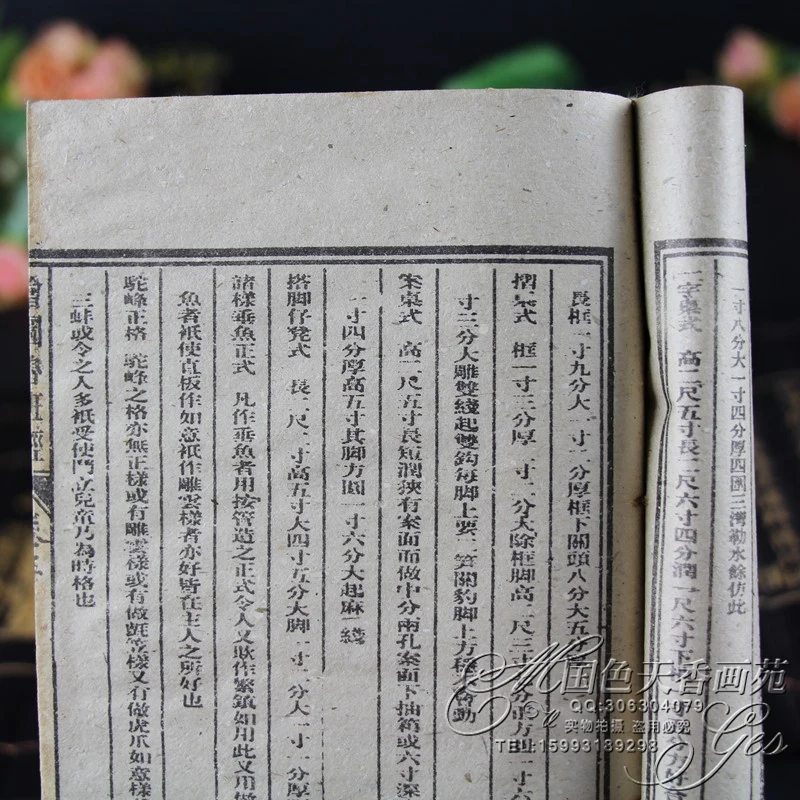 一寸八分大一寸四分厚四圍三灣勒水餘仿此
一字桌式 高二尺五寸長二尺六寸四分濶一尺六寸下
長框一寸九分大一寸二分厚框下關頭八分大五分
摺桌式 框一寸三分厚二寸二分大除框脚高二尺三寸
寸三分大雕雙綫起雙鈎每脚上要二笋關豹脚上方
案桌式 高二尺五寸長短濶狹有案面而做中分兩孔案面下抽箱或六寸深
一寸四分厚高五寸其脚方圓一寸六分大起麻一綫
搭脚仔凳式 長二尺二寸高五寸大四寸五分大脚一寸二分大一寸一分厚
諸樣垂魚正式 凡作垂魚者用按管造之正式令人又歎作繁鎮如用此又用做
魚者袛使直板作如意袛作雕雲樣者亦好皆在主人之所好也
駝峰正格 駝峰之格亦無正樣或有雕雲樣或有做氈笠樣又有做虎爪如意樣
三蚌或令之人多袛受使鬥立兒童乃為時格也
國色天香画苑
QQ:306304079
实物拍摄 盗用必究
TEL:15993189293